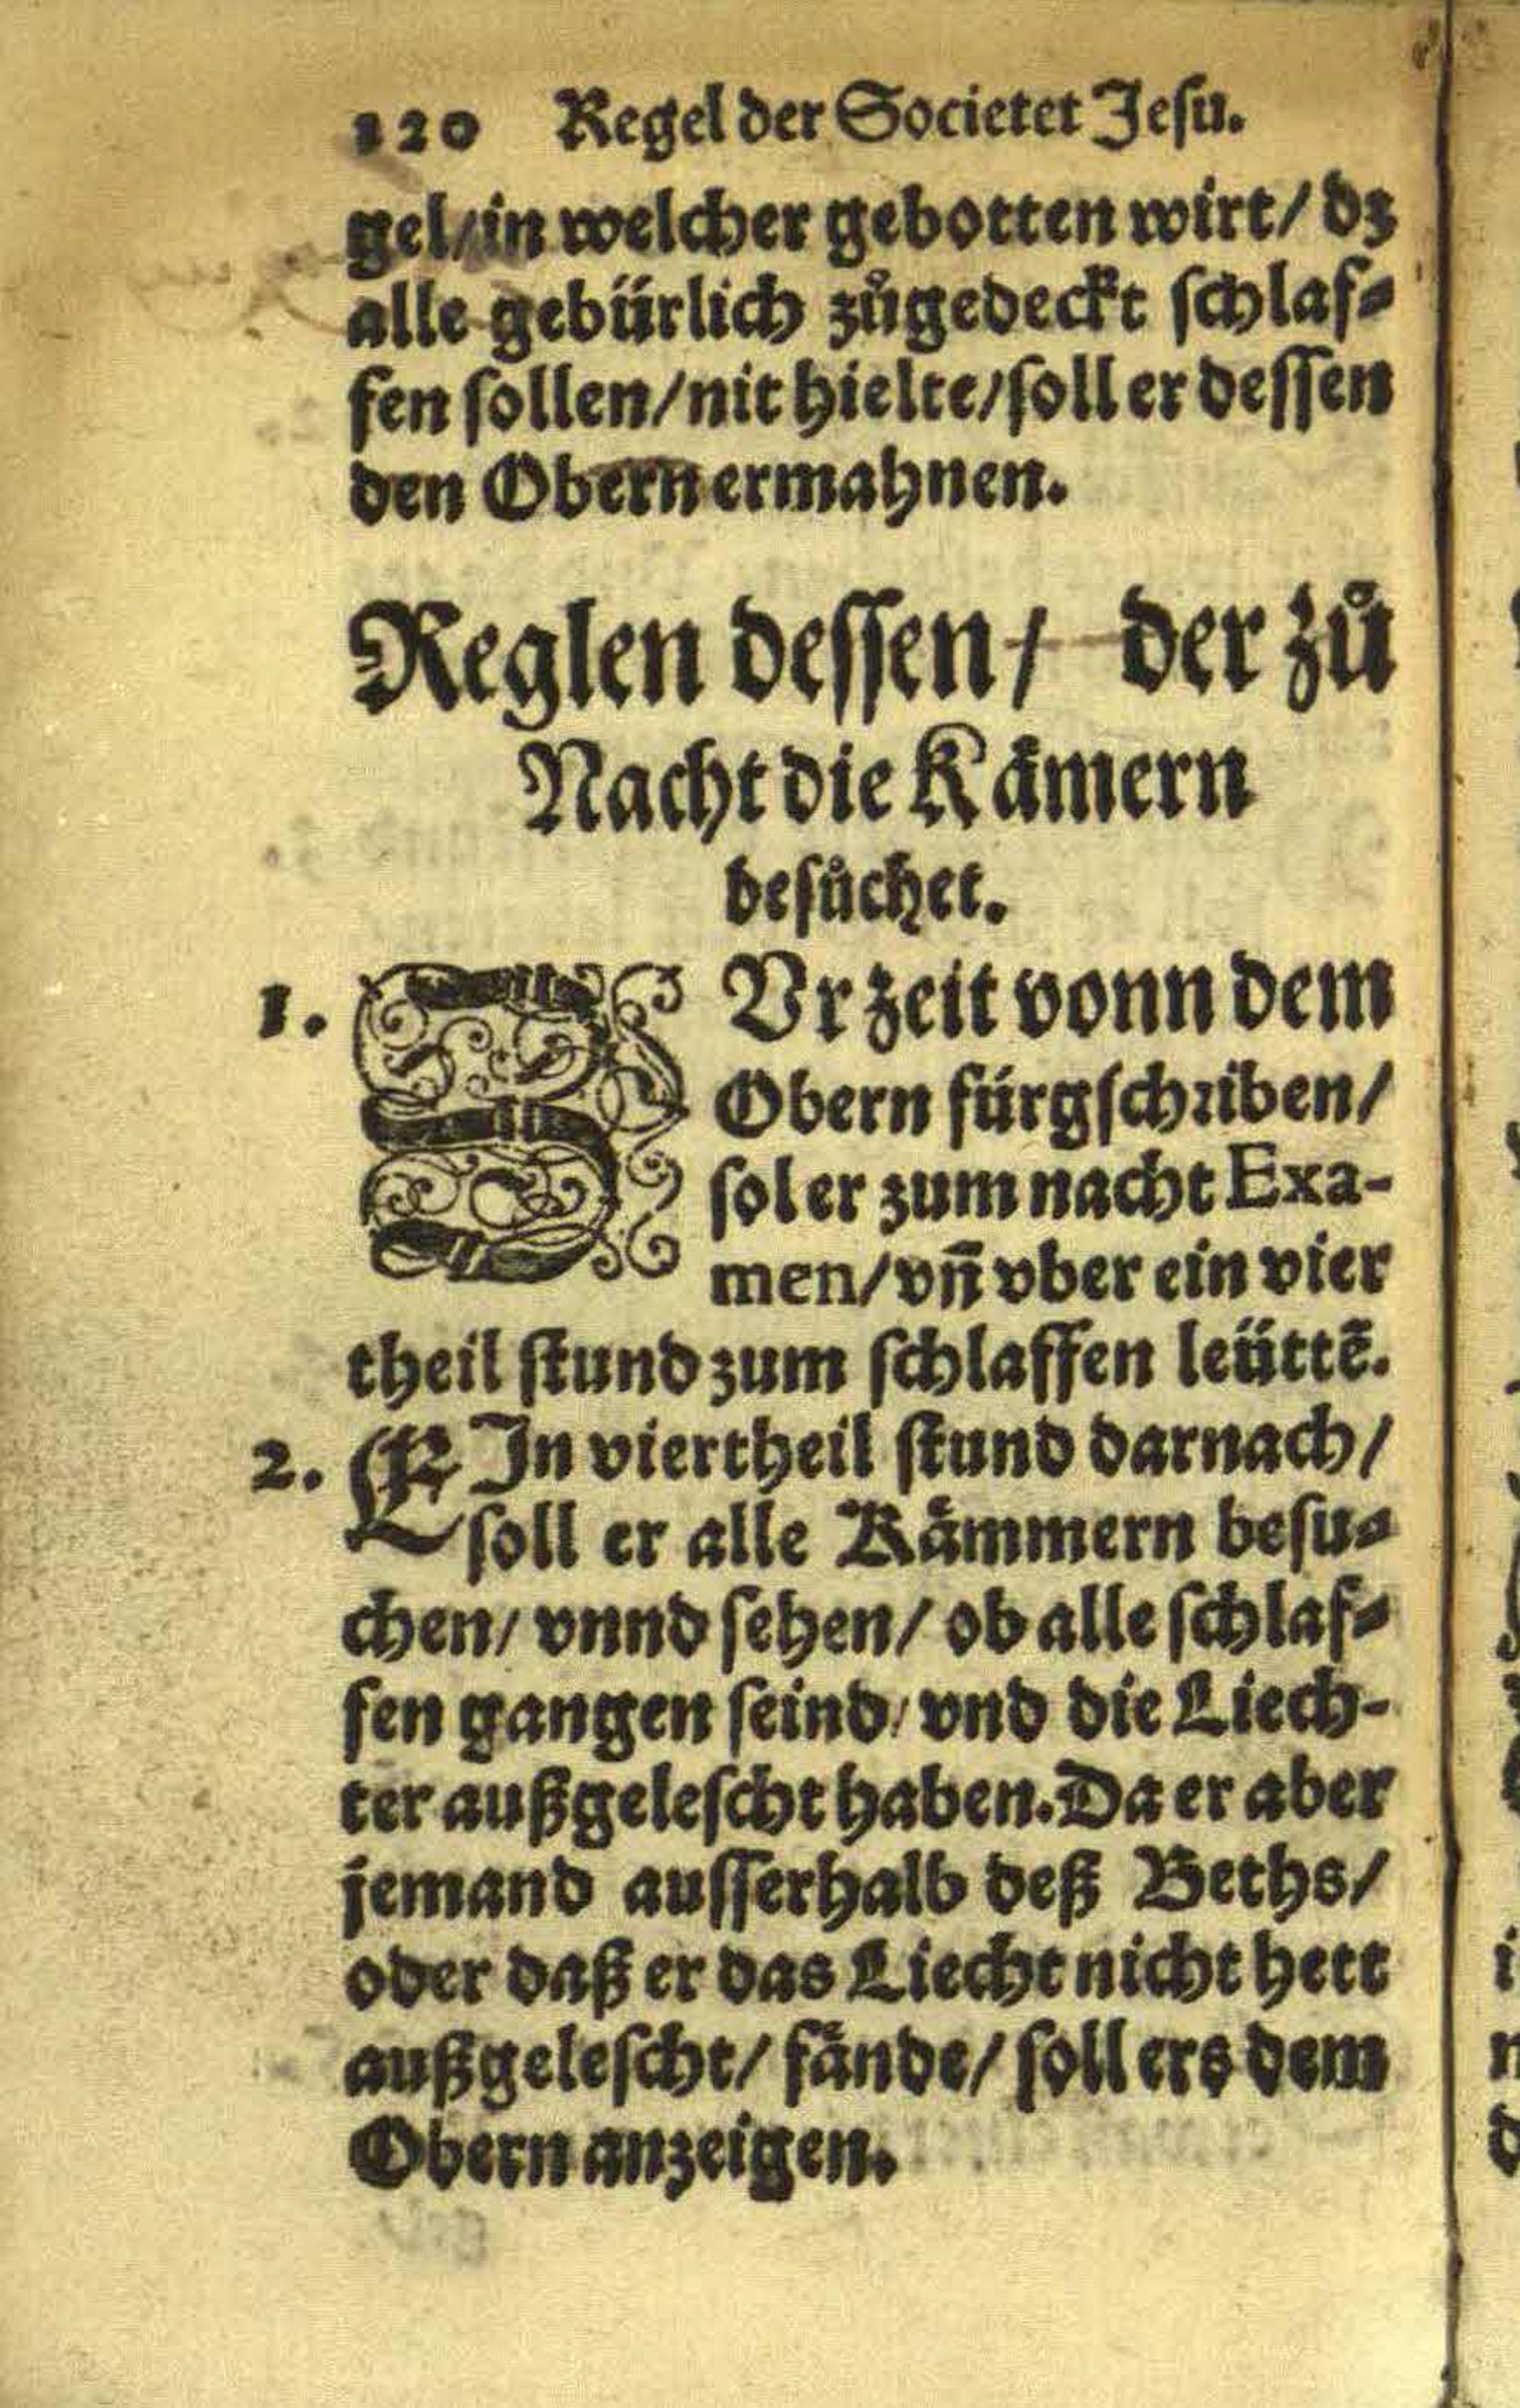 120 Regel der Societet Jesu.
gel/in welcher gebotten wirt/ dz
alle gebürlich zůgedeckt schlaf-
fen sollen/nit hielte/soll er dessen
den Obern ermahnen.
Reglen dessen/ der zů
Nacht die Kämern
besůchet.
1. ZVr zeit vonn dem
Obern fürgschriben/
sol er zum nacht Exa-
men/vñ vber ein vier
theil stund zum schlaffen leüttẽ.
2. EJn viertheil stund darnach/
soll er alle Kämmern besu-
chen/ vnnd sehen/ ob alle schlaf-
fen gangen seind/ vnd die Liech-
ter außgelescht haben. Da er aber
jemand ausserhalb deß Beths/
oder daß er das Liecht nicht hett
außgelescht/ fände/ soll ers dem
Obern anzeigen.